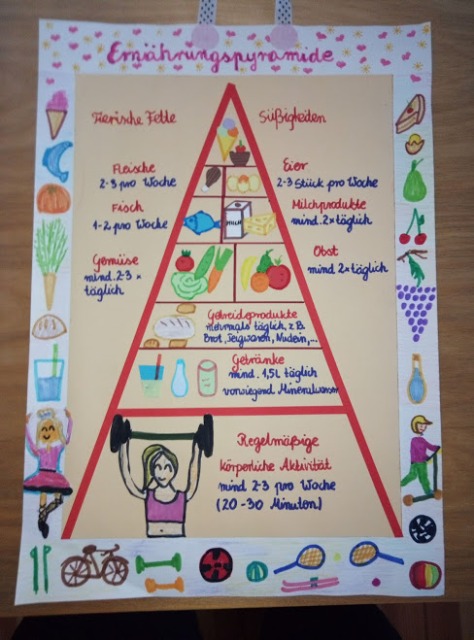 Ernährungspyramide
Tierische Fette
Süßigkeiten
Fleische
2-3 pro Woche
Eier
2-3 Stück pro Woche
Fisch
1-2 pro Woche
Milchprodukte
mind. 2x täglich
Gemüse
mind. 2-3 x
täglich
Obst
mind 2x täglich
Getreideprodukte
mehrmals täglich, z.B.
Brot, Teigwaren, Nudeln,...
Getränke
mind. 1,5L täglich
vorwiegend Mineralwasser
Regelmäßige
körperliche Aktivität
mind 2-3 pro Woche
(20-30 Minuten)